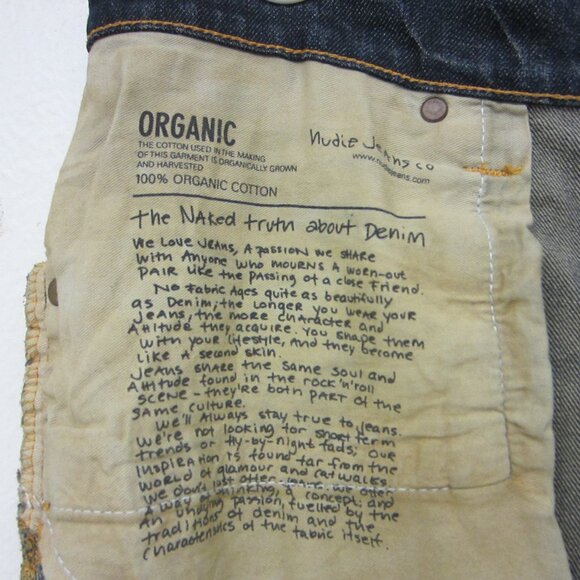 ORGANIC
THE COTTON USED IN THE MAKING
OF THIS GARMENT IS ORGANICALLY GROWN
AND HARVESTED
100% ORGANIC COTTON
nudie Jeans co
www.nudiejeans.com
the Naked truth about Denim
We Love Jeans, A passion we share
with Anyone who mourns a worn-out
pair like the passing of a close friend.
No Fabric Ages quite as beautifully
as Denim; the longer you wear your
jeans, the more character and
Attitude they acquire. You shape them
with your lifestyle, and they become
like a second skin.
Jeans share the same soul and
Attitude found in the rock'n'roll
scene - they're both part of the
same culture.
We'll Always stay true to jeans.
We're not looking for short term
trends or fly-by-night fads; our
inspiration is found far from the
world of glamour and catwalks.
We don't just offer jeans, we offer
a way of thinking, a concept, and
an undying passion, fuelled by the
traditions of denim and the
characteristics of the fabric itself.